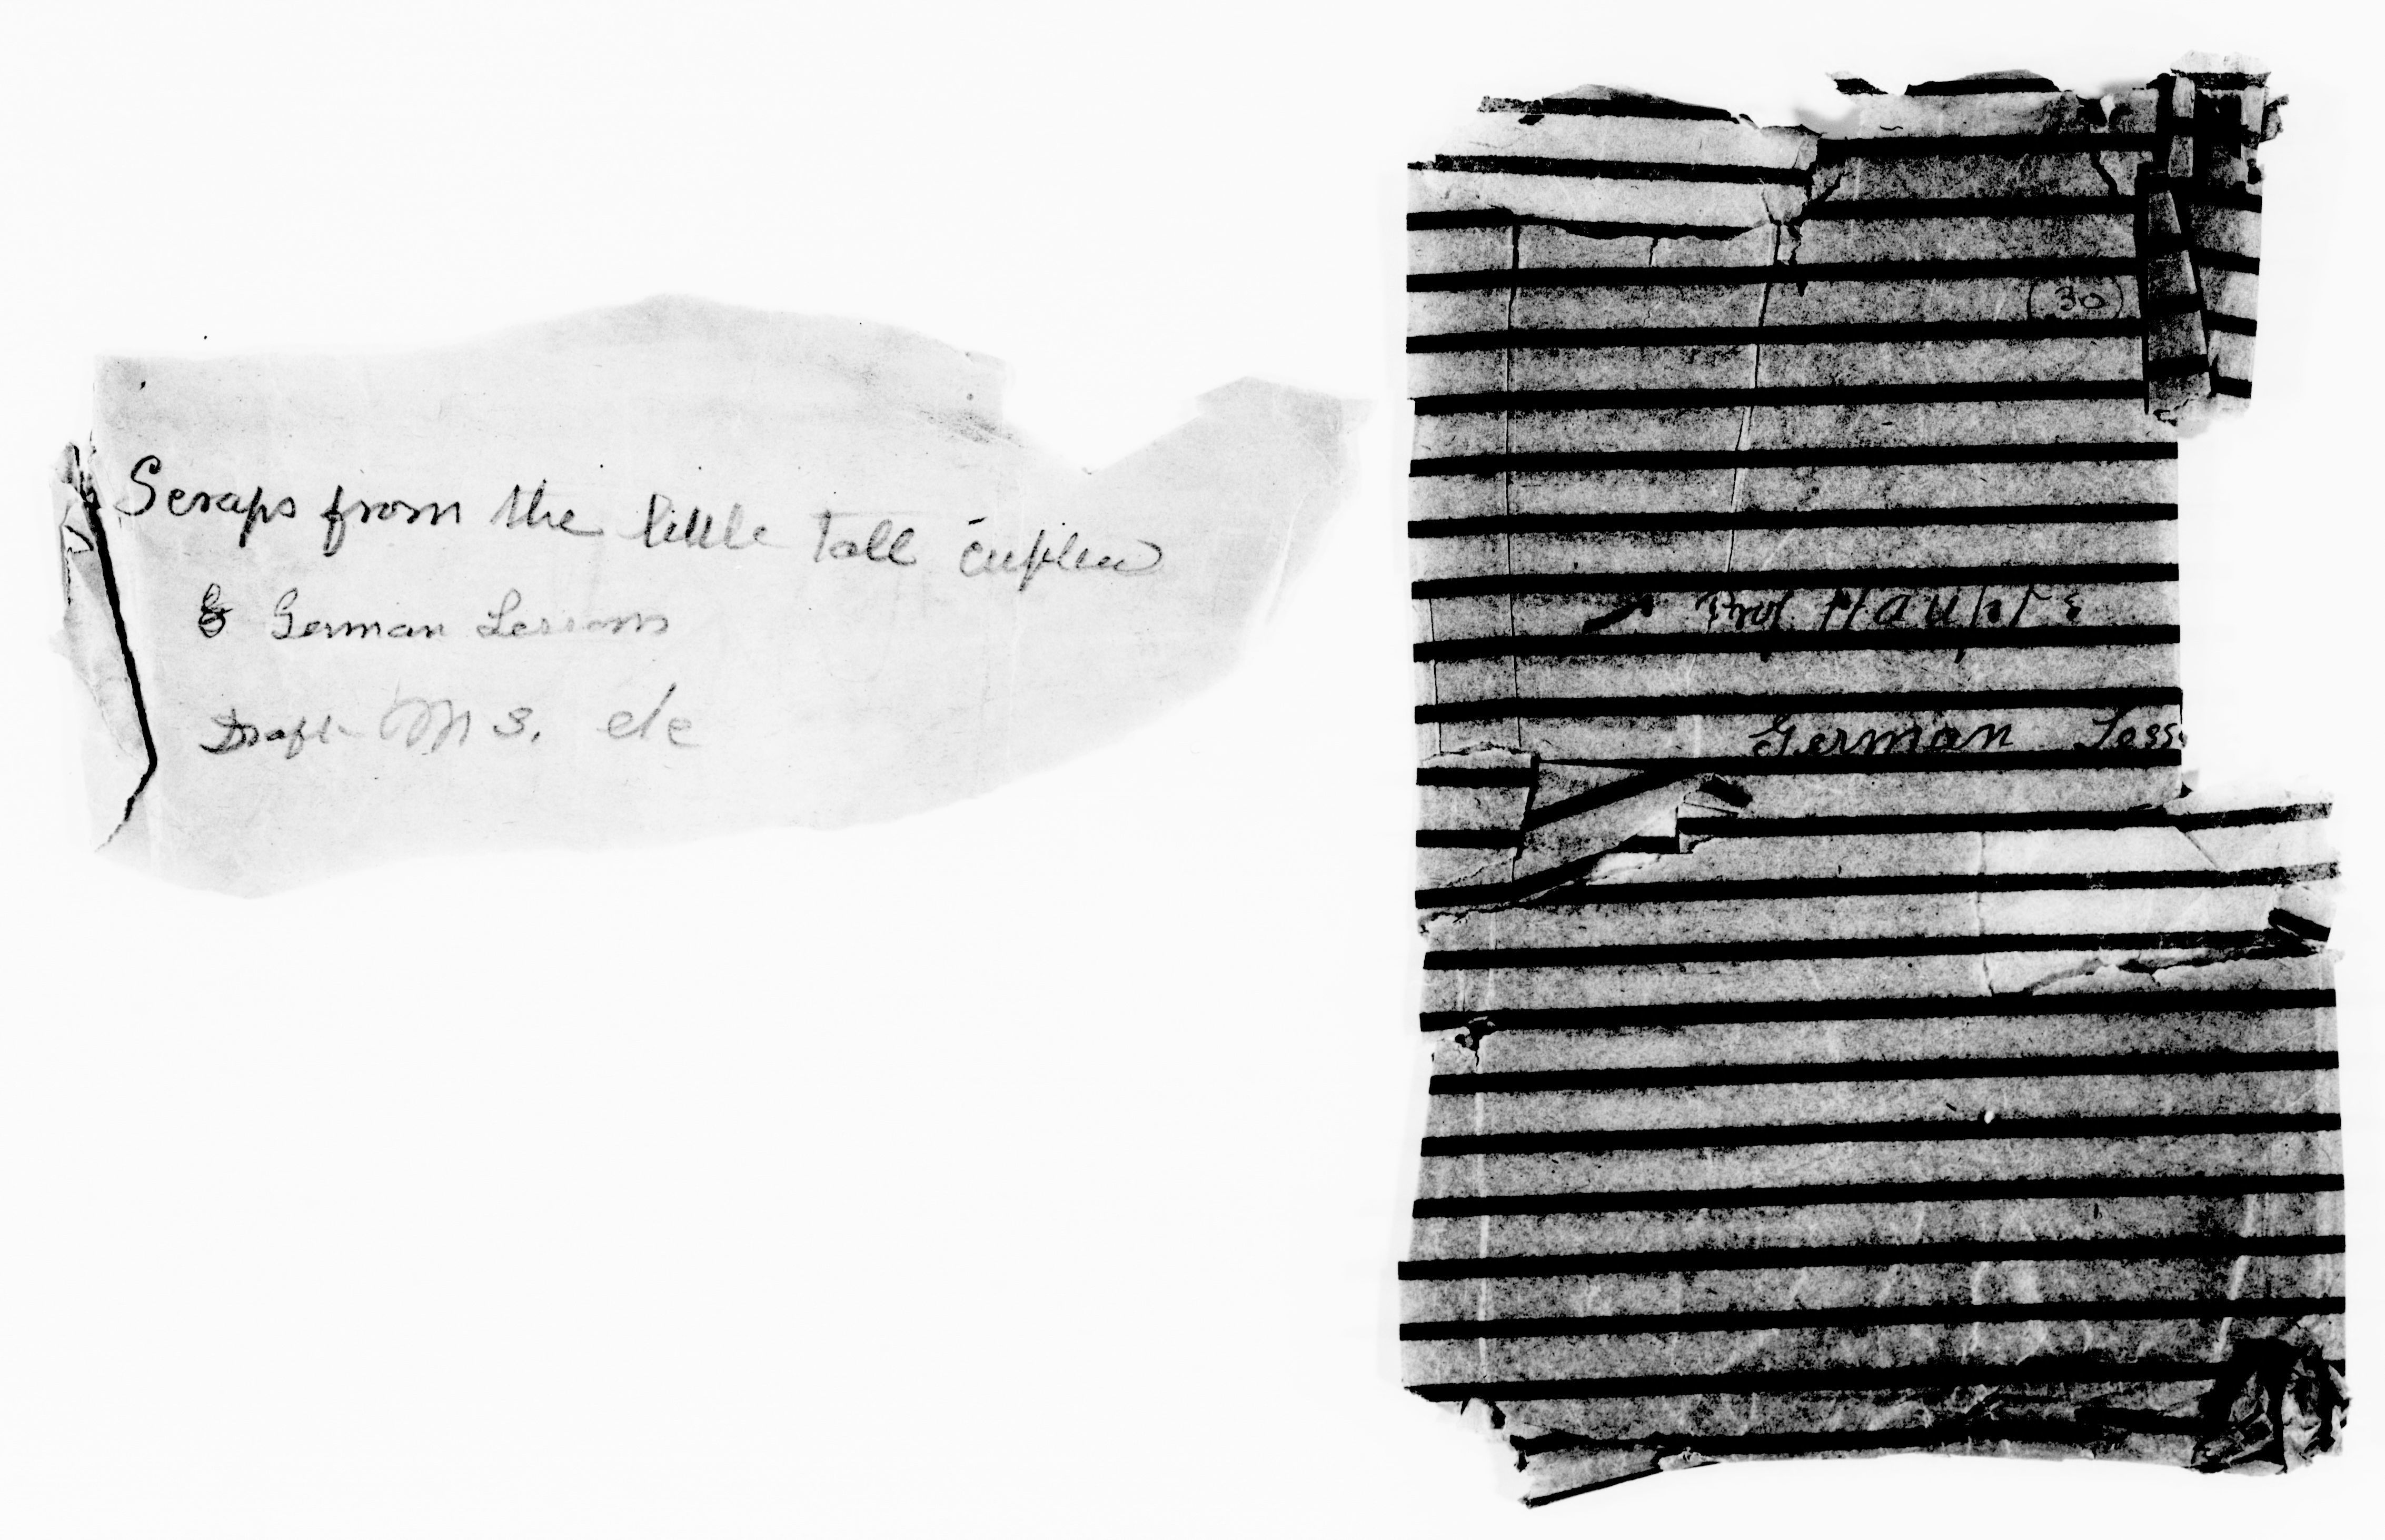 Scraps from the little tall
& German Lessons
Draft MS. etc
(30)
Prof Haupt's
German Less